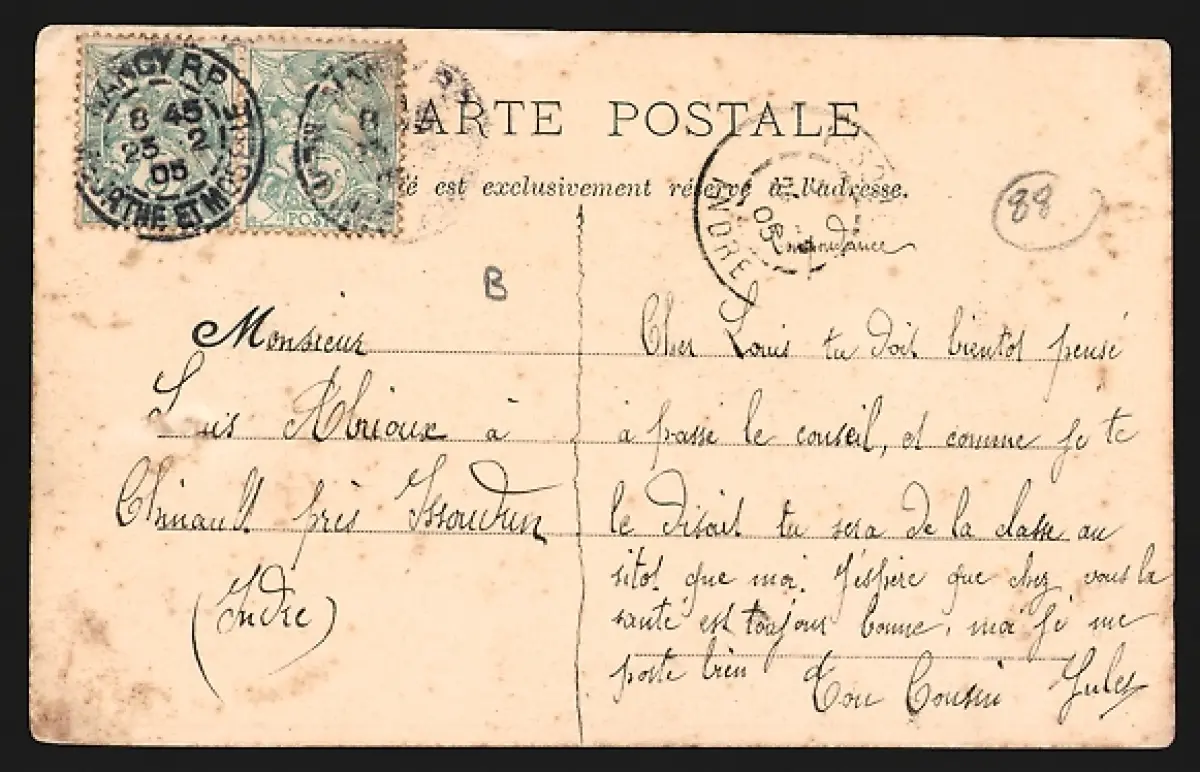 NANCY R.P.
8 45
25 2
05
MEURTHE ET MOSELLE
8
POSTES
CARTE POSTALE
est exclusivement réservé à l'adresse.
05
INDRE
Correspondance
88
B
Monsieur
Louis Abrioux à
Chinault près Issoudun
(Indre)
Cher Louis tu doit bientot pensé
à passé le conseil, et comme je te
le disait tu sera de la classe au
sitot que moi. J'espère que chez vous la
santé est toujour bonne, moi je me
porte bien Ton Cousin Jules